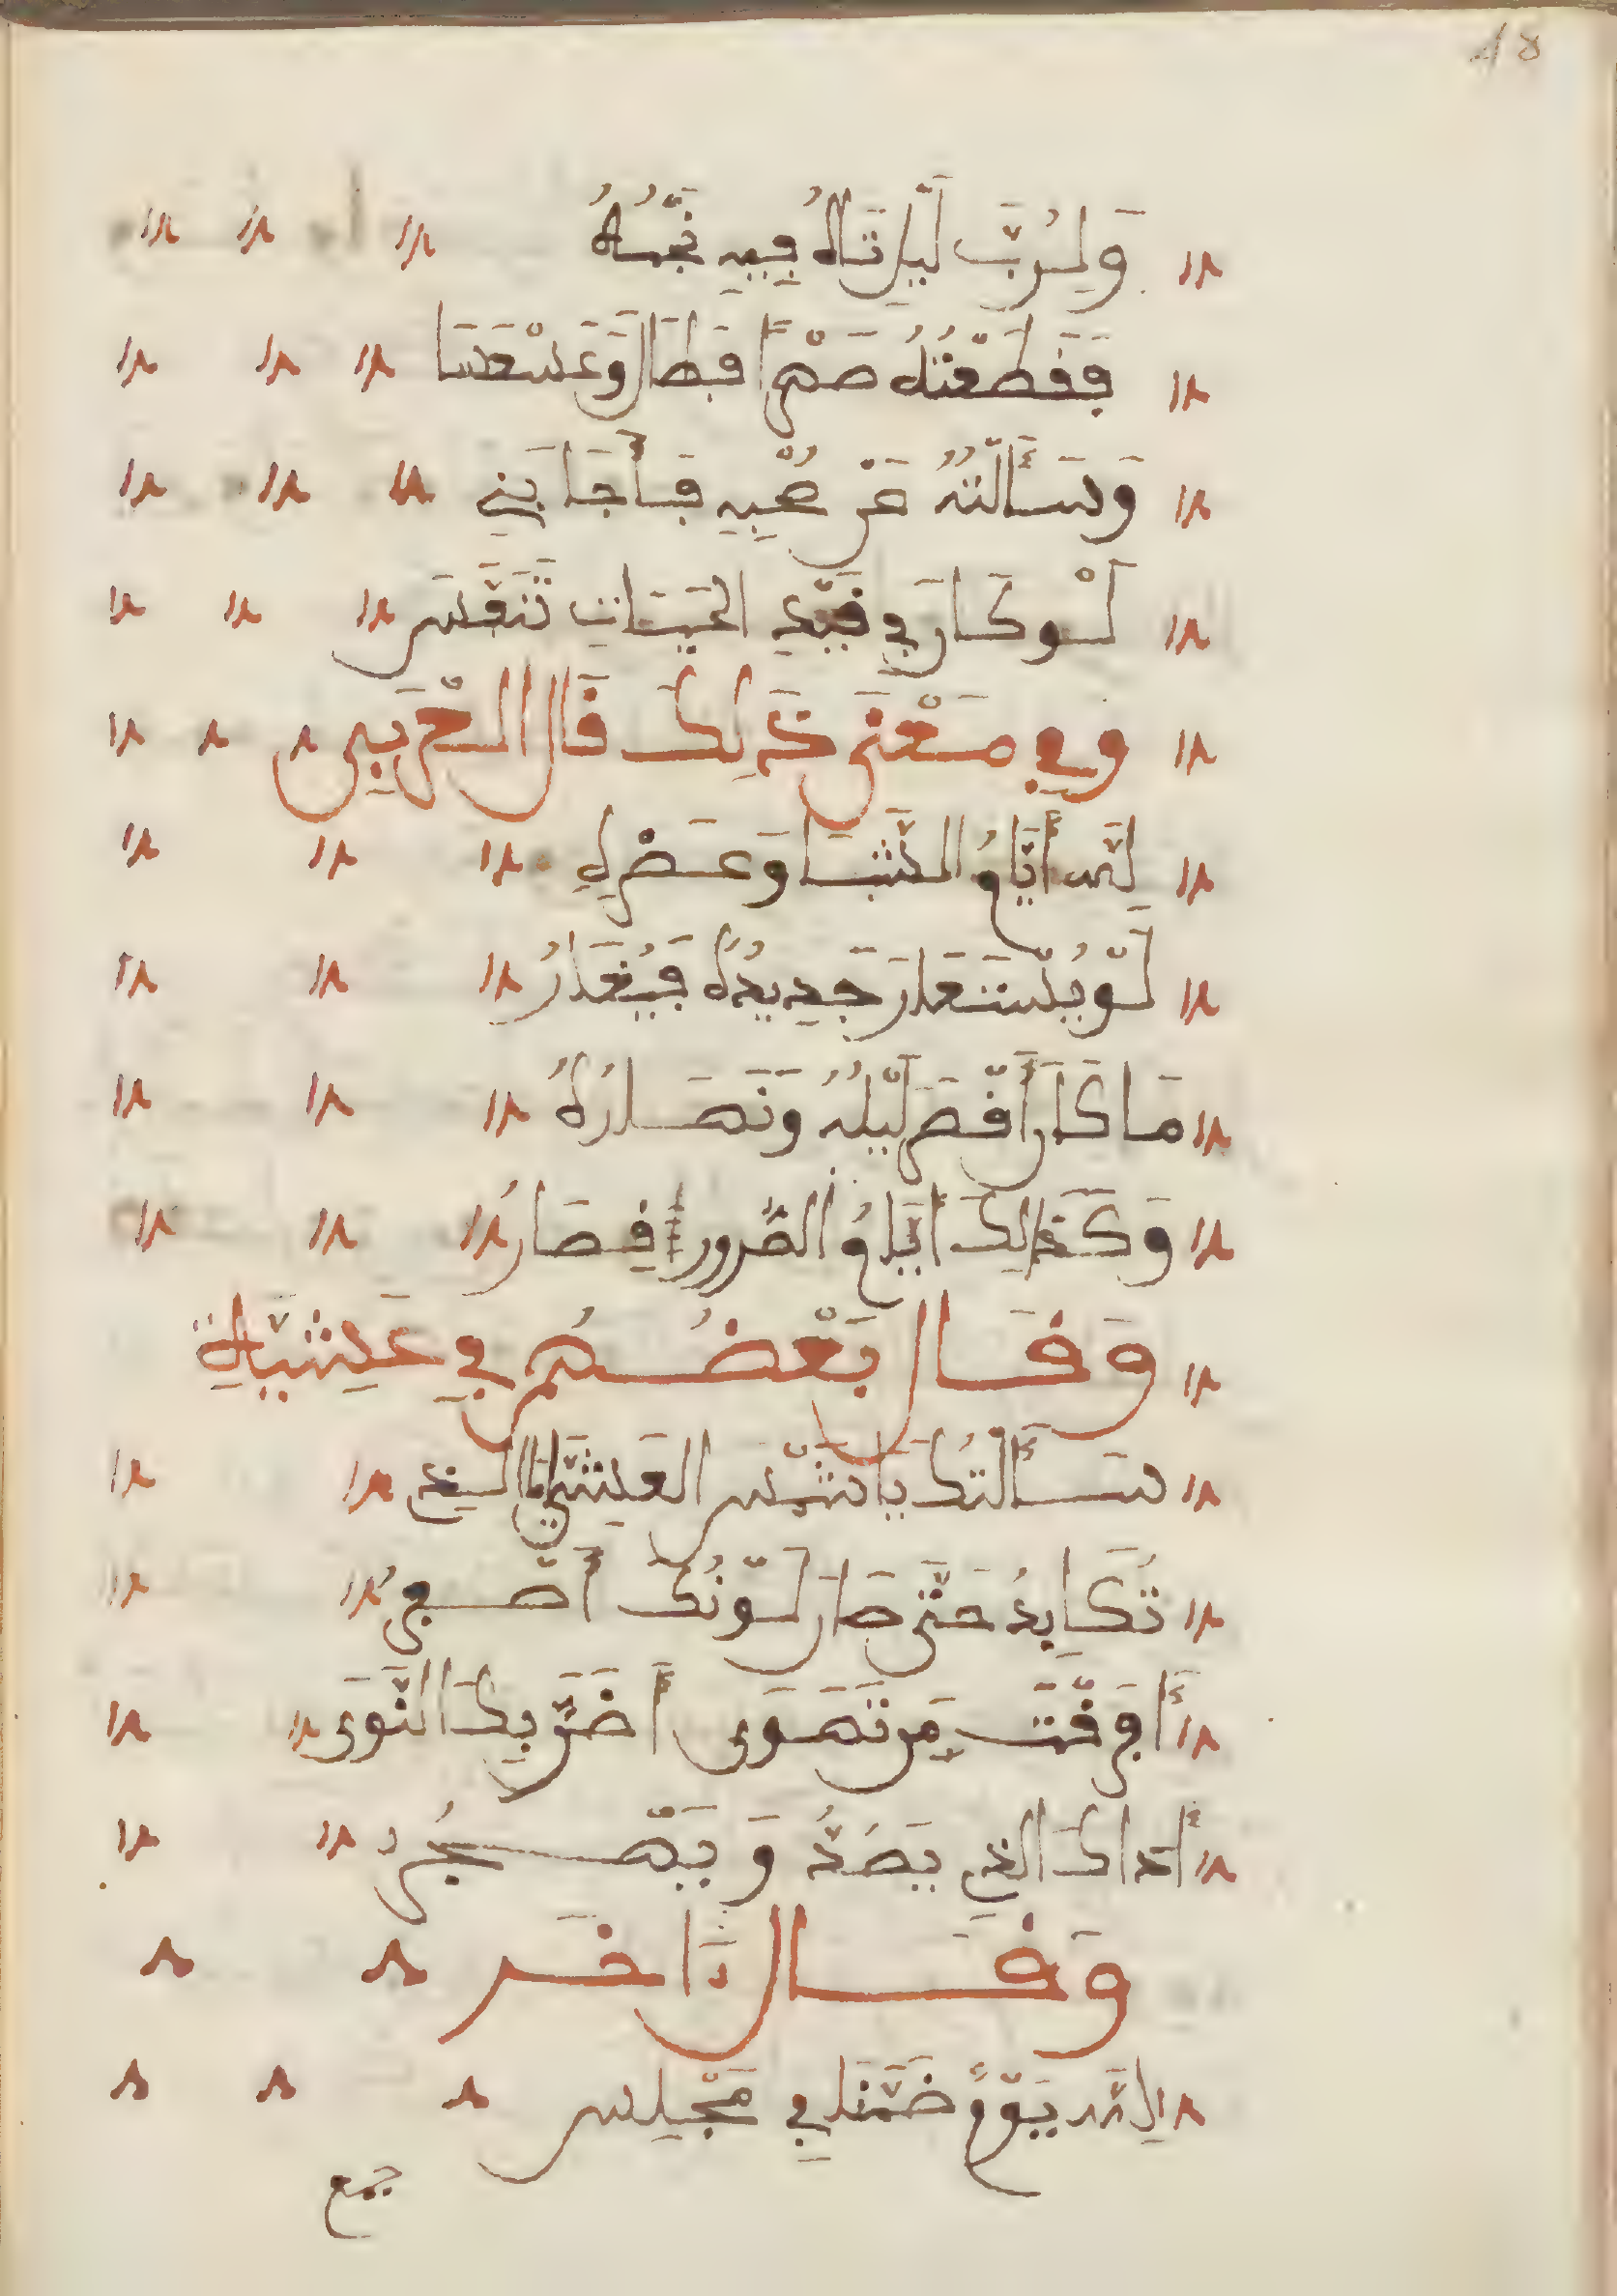 48
وَلَرُبَّ لَيْلٍ تَاهَ فِيهِ نَجْمُهُ
فَقَطَعْتُهُ صَهْرًا فَطَالَ وَعَسْعَسَا
وَسَأَلْتُهُ عَنْ صُبْحِهِ فَأَجَابَنِي
لَوْ كَانَ فِي قَيْدِ الحَيَاتِ تَنَفَّسَ
وَفِي مَعْنَى ذَلِكَ قَالَ
لِلَّهِ أَيَّامُ الشَّبَا وَعَصْرِهِ
لَوْ يُسْتَعَارَ جَدِيدُهُ فَيُعَارُ
مَا كَانَ أَقْصَرَ لَيْلُهُ وَنَهَارُهُ
وَكَذَالِكَ أَيَّامُ الصُّرور قِصَارُ
وَقَالَ بَعْضُهُمْ فِي عَشِيَّةِ
سَأَلْتُكَ يَا شَمْسَ العَشِيِّ مَا الذِي
تُكَابِدُ حَتَّى صَارَ لَوْنُكَ أَصْفَرُ
أَفَرَقْتَ مَن تَهْوَى أَضَرَّ بِكَ النَّوَى
أَذَاكَ الذِي يَصُدُّ وَيَهْجُرُ
وَقَالَ ءَاخَر
لِلَّهِ يَوْمٌ ضَمَّنَا فِي مَجْلِسِ
جمع